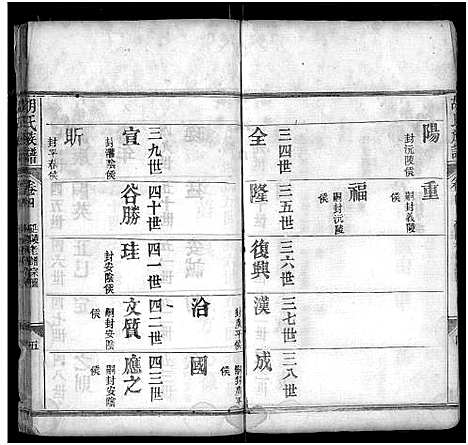 陽
封沅陵侯
重
嗣封義陵
侯
福
嗣封沅陵
侯
三四世
三五世
三六世
三七世
三八世
全
隆
復興
漢
成
治
國
三九世
四十世
四一世
四二世
四三世
宣
封灕陰侯
谷勝
珪
封安陰侯
文質
嗣封安陰
侯
應之
嗣封安陰
侯
昕
封平春侯
胡氏族譜
卷四
五